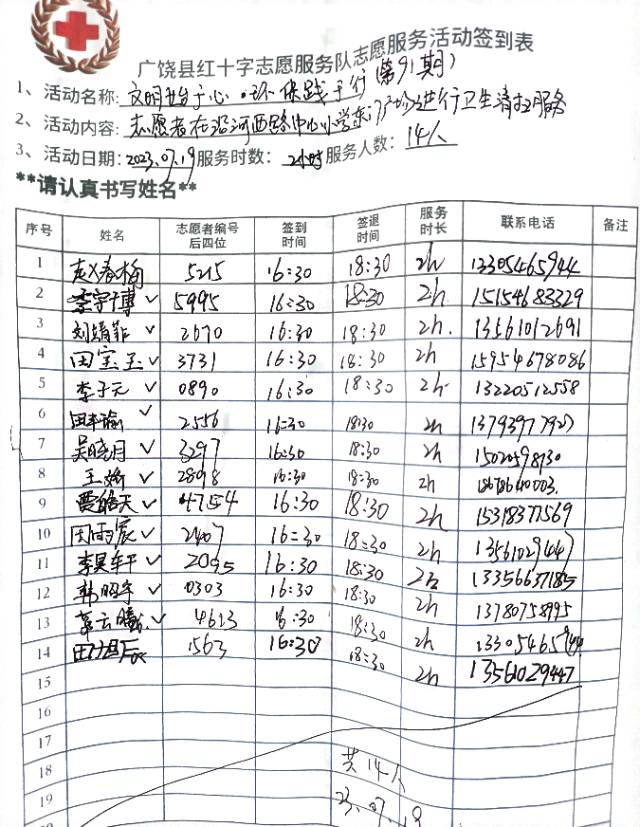 广饶县红十字志愿服务队志愿服务活动签到表
1、活动名称: 文明始于心·环保践于行(第91期)
2、活动内容: 志愿者在沿河西路中心小学东门广场进行卫生清扫服务
3、活动日期: 2023.07.19 服务时数: 2小时 服务人数: 14人
**请认真书写姓名**
序号 姓名 志愿者编号后四位 签到时间 签退时间 服务时长 联系电话 备注
1 赵春梅 5215 16:30 18:30 2h 13305465944
2 李宇博 ✓ 5995 16:30 18:30 2h 15154683329
3 刘靖菲 ✓ 2670 16:30 18:30 2h. 13561012691
4 田宝玉 ✓ 3731 16:30 18:30 2h 15954678086
5 李子元 ✓ 0890 16:30 18:30 2h 13220512558
6 ✓ 2556 16:30 18:30 2h
7 吴晓月 ✓ 3297 16:30 18:30 2h
8 王娇 ✓ 2898 16:30 18:30 2h
9 贾皓天 ✓ 4754 16:30 18:30 2h 15318377569
10 田雨宸 ✓ 2407 16:30 18:30 2h
11 李昊牟平 ✓ 2095 16:30 18:30 2h 13356637185
12 韩昭年 ✓ 0303 16:30 18:30 2h 13780758995
13 ✓ 4613 16:30 18:30 2h
14 1563 16:30 18:30 2h 13561029447
15
16
17
18 共14人
19 23.07.19